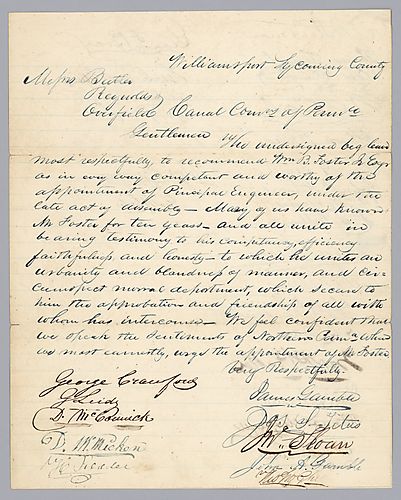 Williamsport Lycoming County
Messrs Butler
Reynolds
Overfield Canal Comrs of Penna
Gentlemen The undersigned beg leave
most respectfully, to recommend Wm B. Foster Jr Esqr
as in every way competent and worthy of the
appointment of Principal Engineer, under the
late act of assembly — Many of us have known
Mr Foster for ten years — and all unite in
bearing testimony to his competency, efficiency
faithfulness, and honesty — to which he unites an
urbanity and blandness of manner, and cir-
cumspect moral deportment, which secure to
him the approbation and friendship of all with
whom has intercourse — We feel confident that
we speak the sentiments of Northern Penna when
we most earnestly, urge the appointment of Mr Foster
Very Respectfully
George Crawford
James Gamble
D. McCormick
Wm Sloan
John A. Gamble